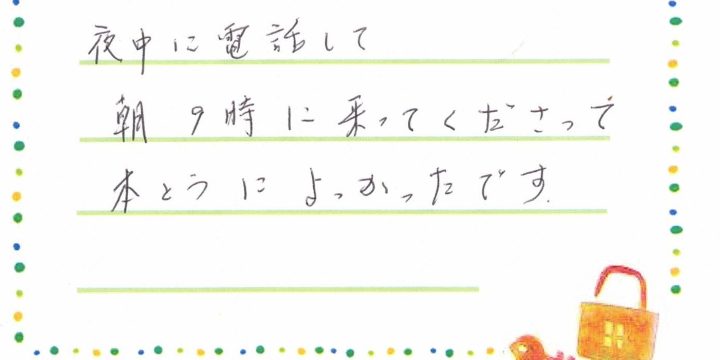 夜中に電話して
朝 9時に来ってくださって
本とうによっかったです.